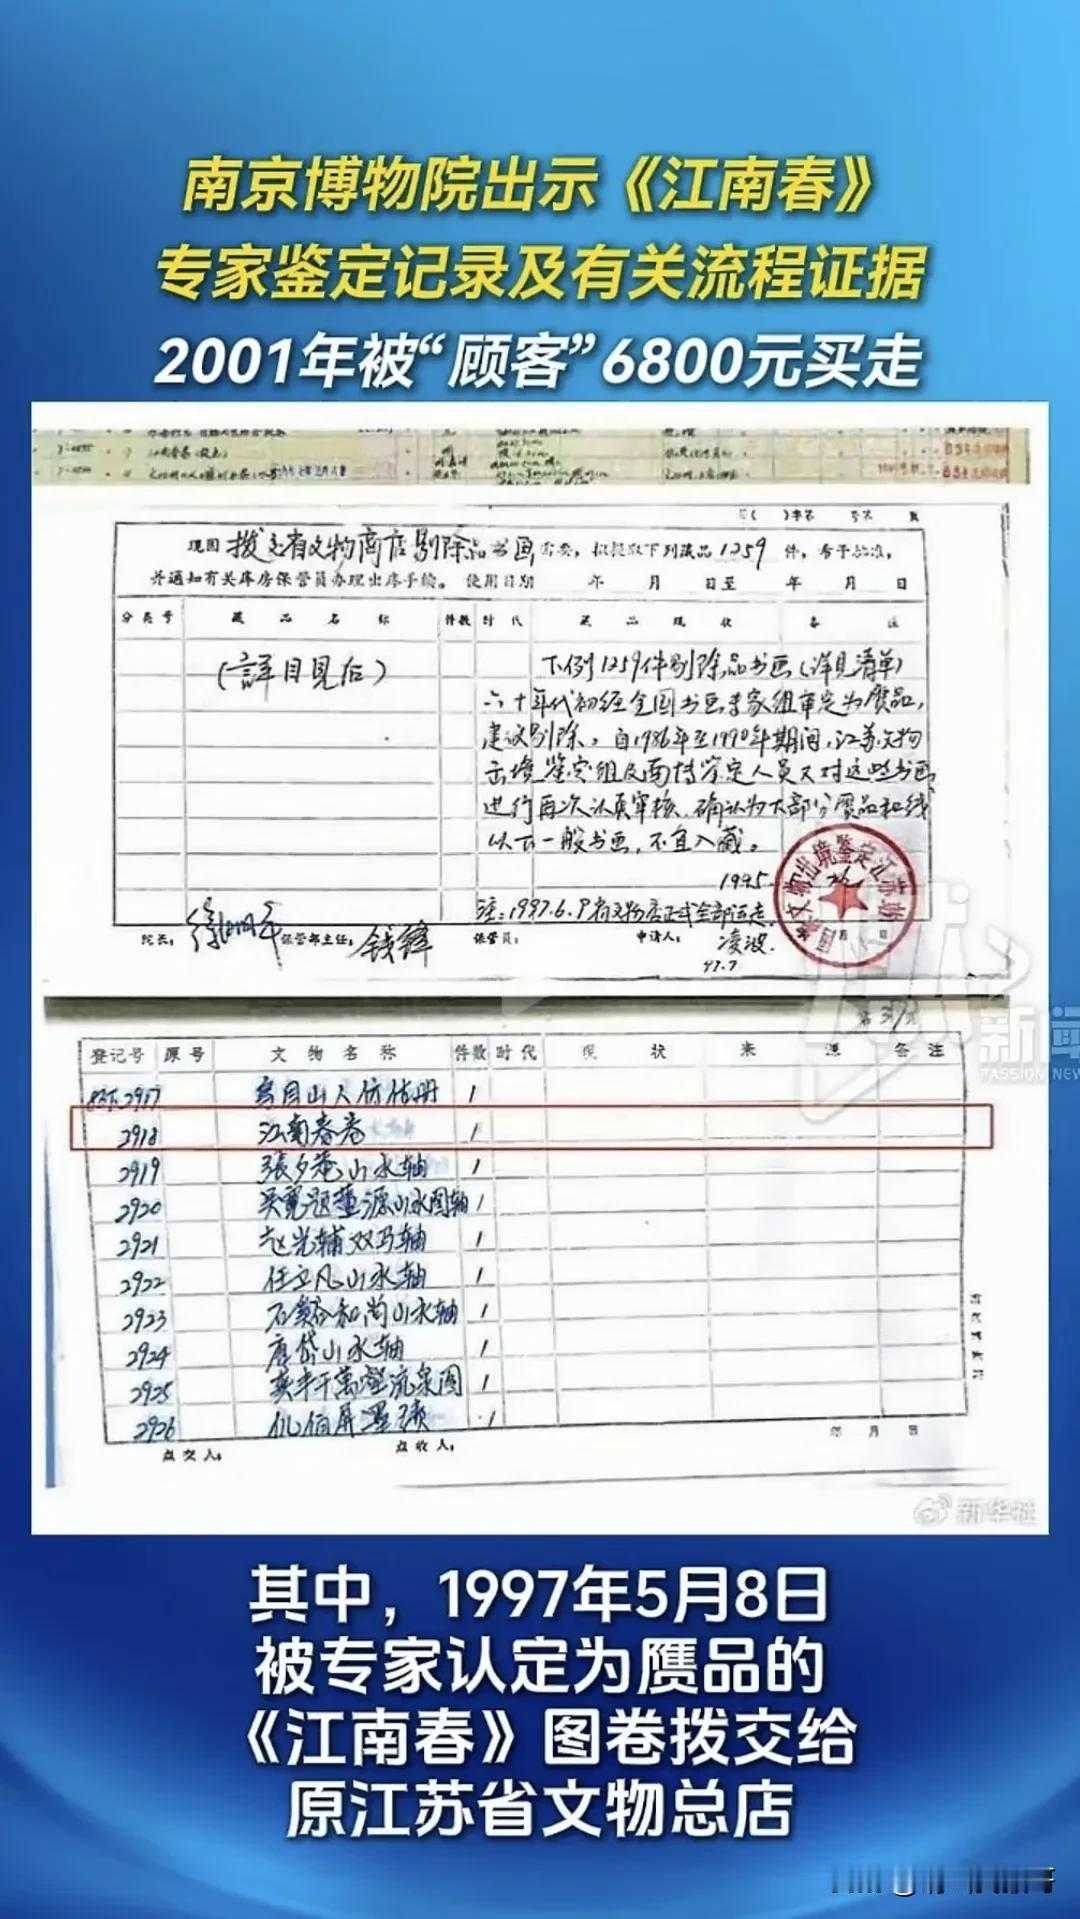 南京博物院出示《江南春》
专家鉴定记录及有关流程证据
2001年被“顾客”6800元买走
现因 拨交省文物商店剔除品书画 需要，拟提取下列藏品 1259 件，希予批准，
并通知有关库房保管员办理出库手续。 使用日期 年 月 日至 年 月 日
分类号 藏品名称 件数 时代 藏品现状 备注
(詳目見后)
下例1259件剔除品书画(详见清单)
六十年代初经全国书画专家组审定为赝品，
建议剔除，自1986年至1990年期间，江苏文物
出境鉴定组及南博鉴定人员又对这些书画
进行再次认真审核，确认为大部分赝品和线
以下一般书画，不宜入藏。
1995.
注：1997.6.9省文物店正式全部运走。
院长： 徐湖平 保管部主任： 钱锋 保管员： 申请人： 凌波
97.7
登记号 原号 文物名称 件数 时代 现状 来源 备注
2917 1
2918 江南春卷 1
2919 張夕菴山水轴 1
2920 吴寛题董源山水图轴 1
2921 赵光辅双马轴 1
2922 任立凡山水轴 1
2923 石谿和尚山水轴 1
2924 唐岱山水轴 1
2925 1
2926 1
点交人： 点收人： 年 月 日
新闻
PASSION NEWS
新华社
其中，1997年5月8日
被专家认定为赝品的
《江南春》图卷拨交给
原江苏省文物总店